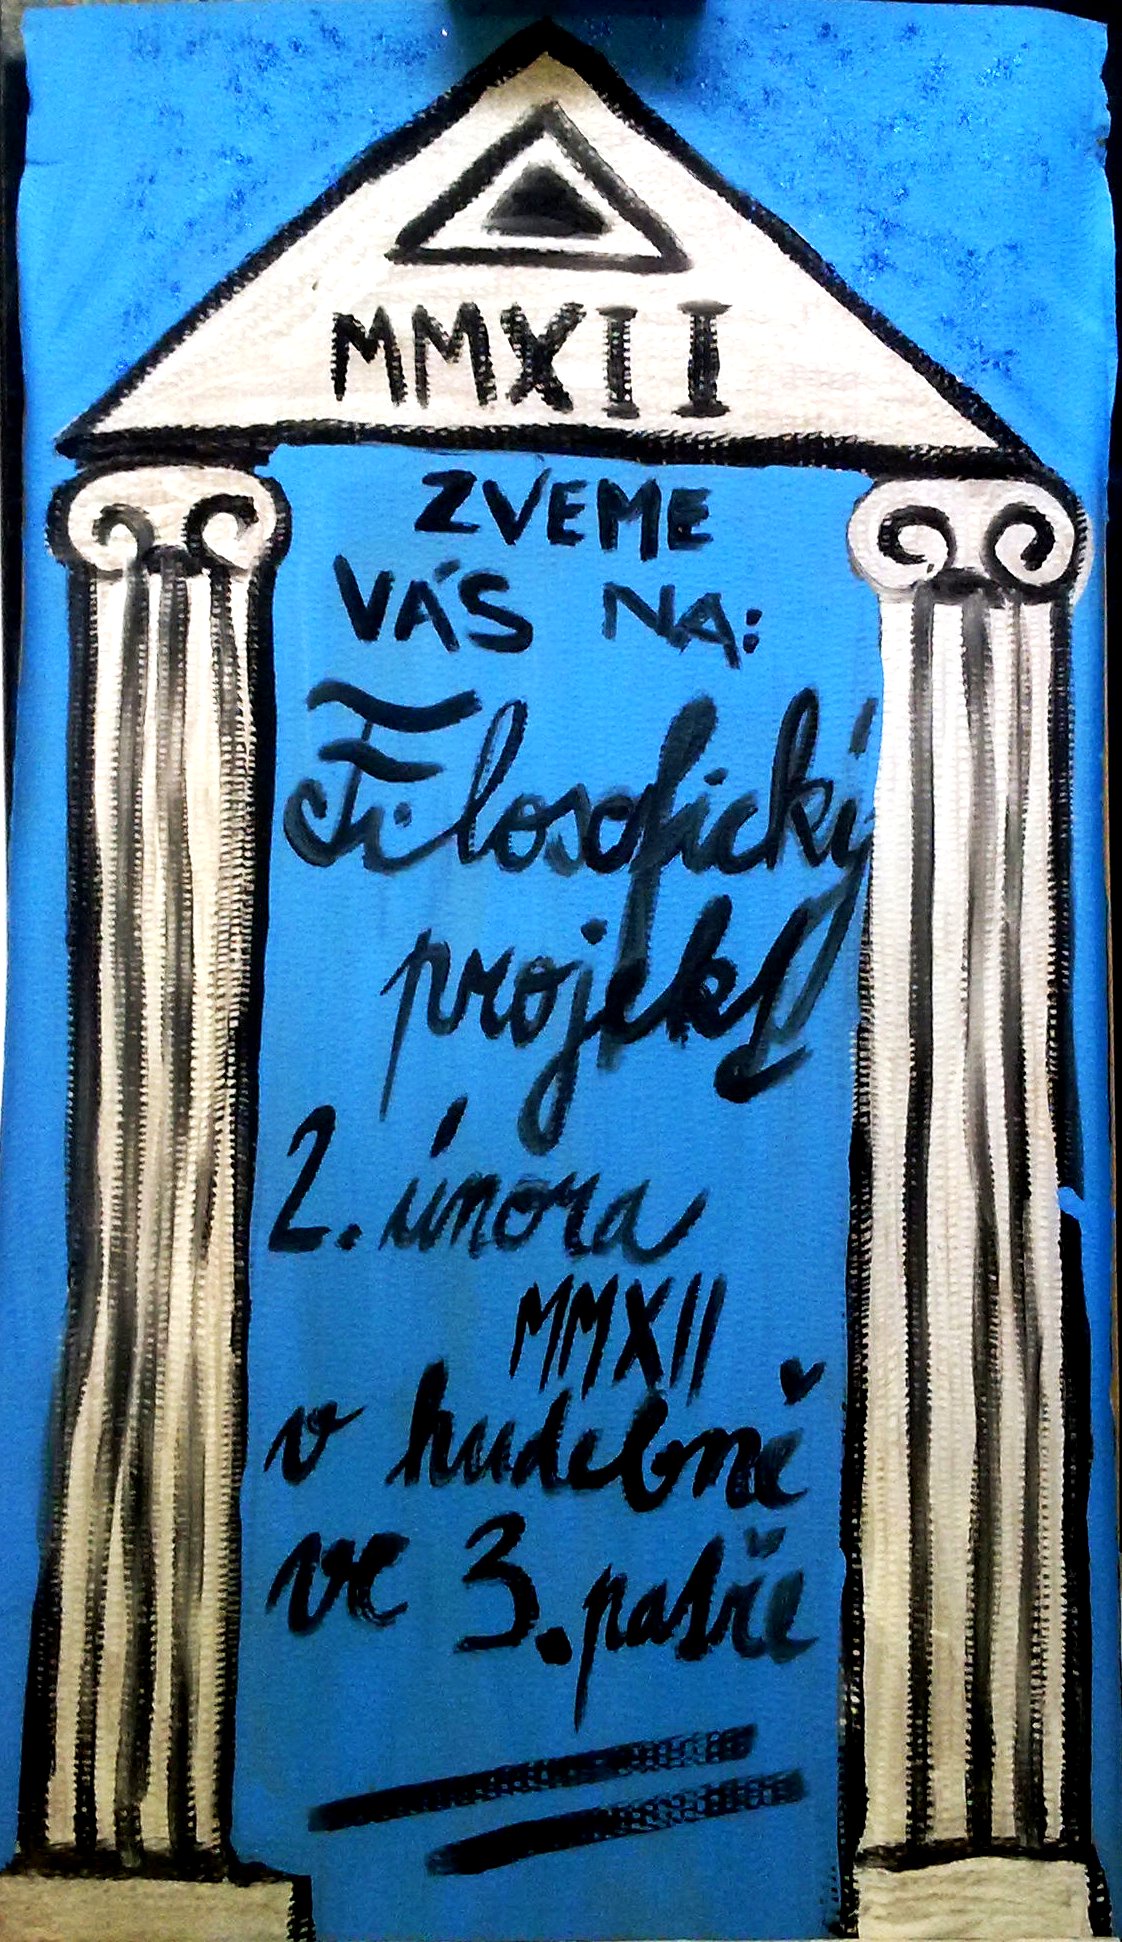 MMXII
ZVEME
VÁS NA:
Filosofický
projekt
2. února
MMXII
v hudebně
ve 3. patře